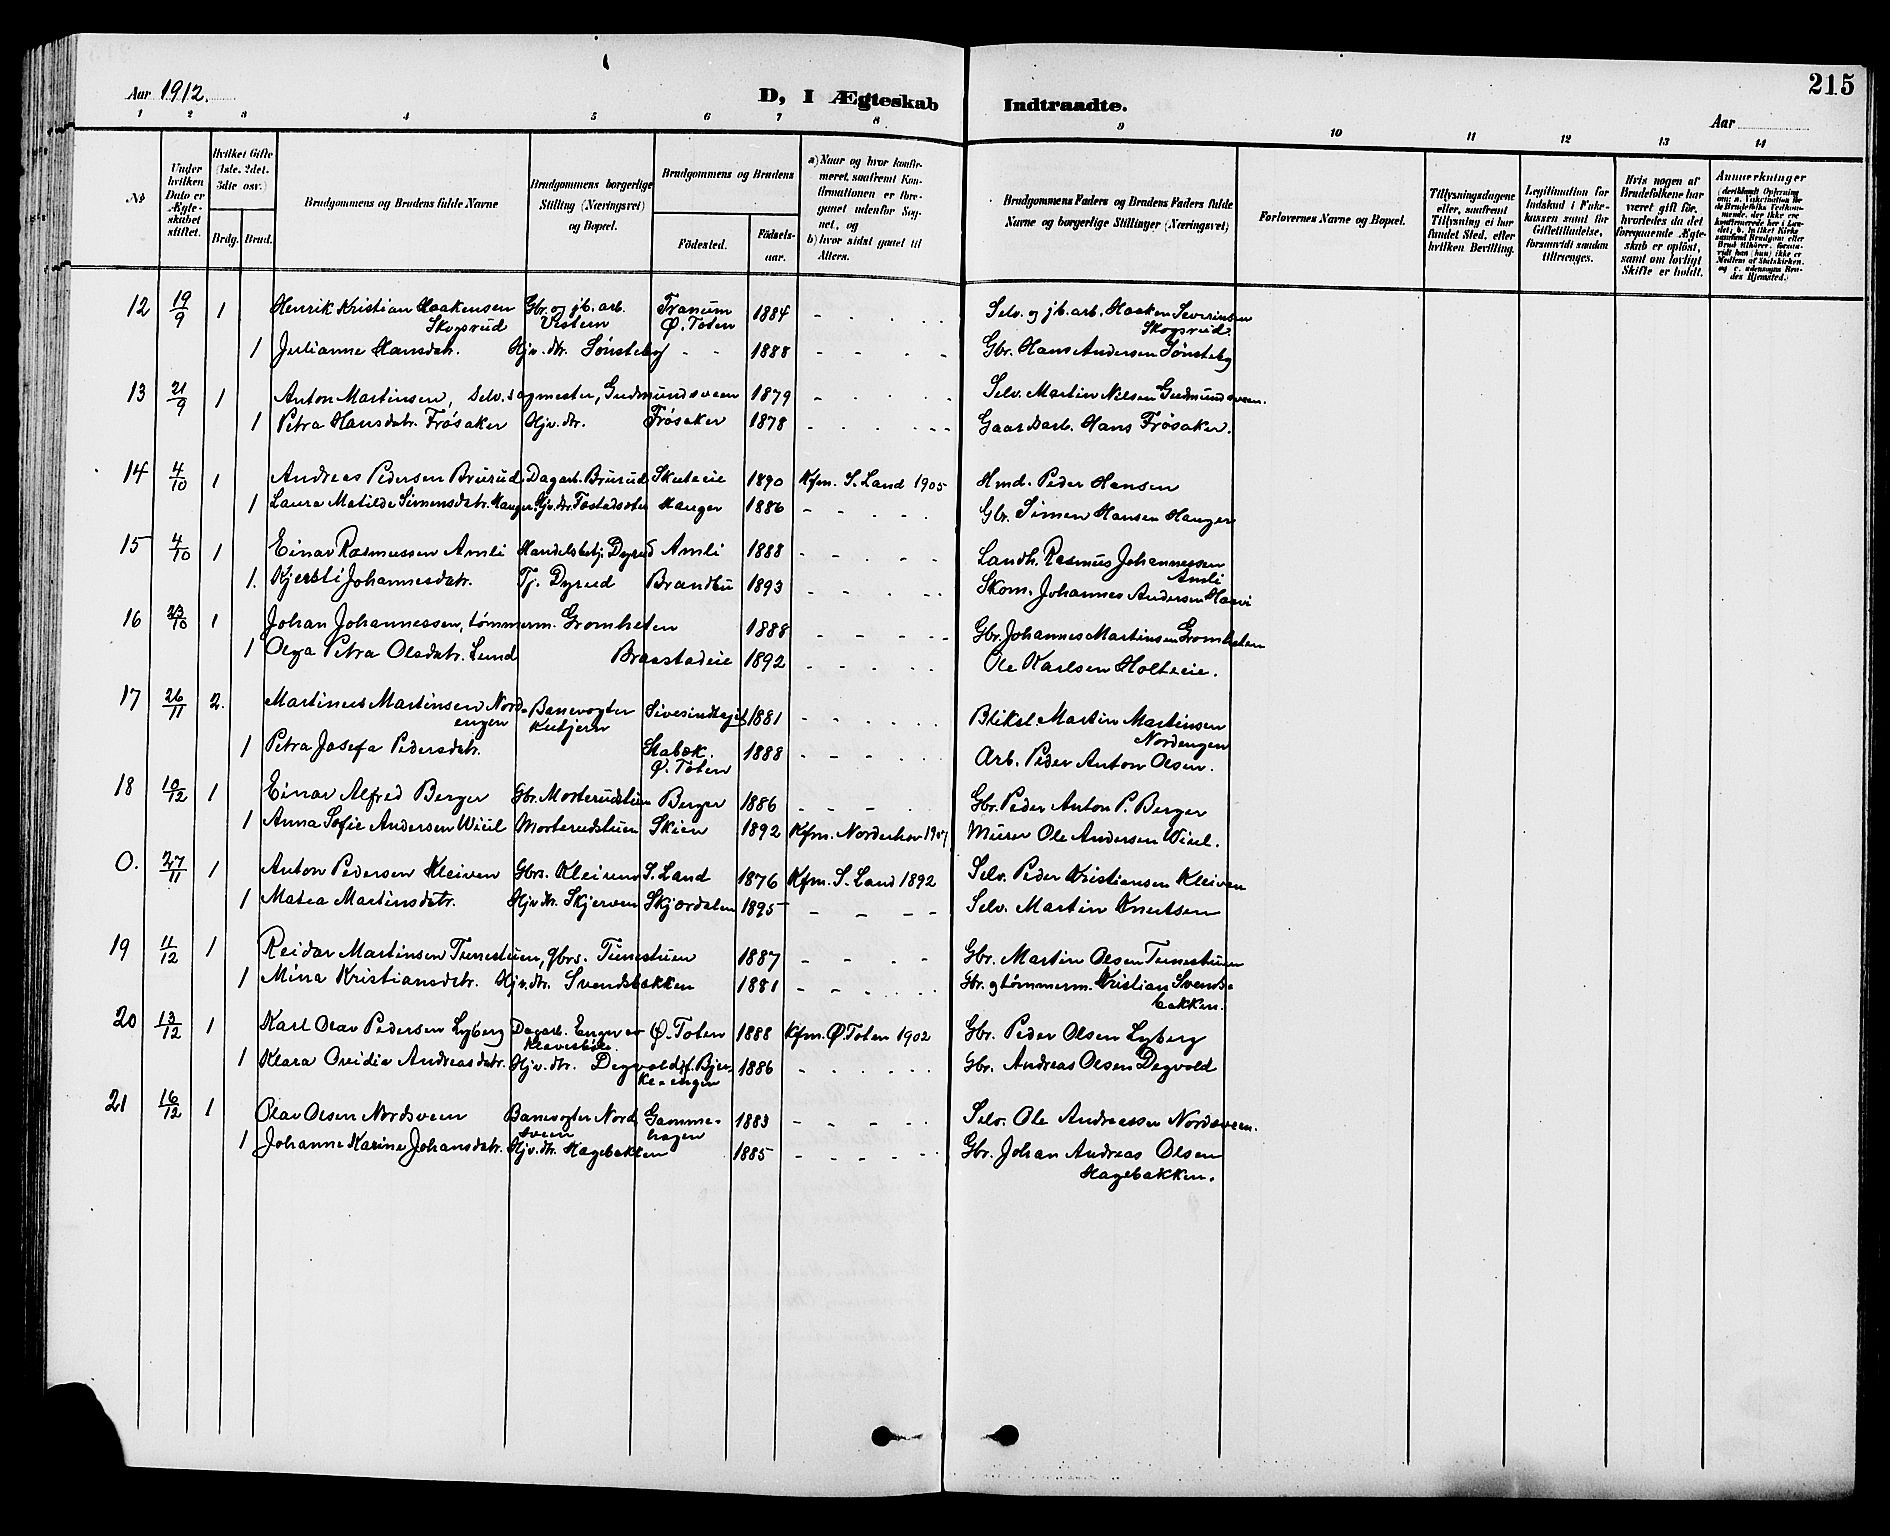 215
Aar 1912.
D, I Ægteskab Indtraadte.
Aar
1 2 3 4 5 6 7 8 9 10 11 12 13 14
No
Under hvilken Dato er Ægteskabet stiftet.
Hvilket Gifte (1ste. 2det. 3die osv.)
Brdg. Brud.
Brudgommens og Brudens fulde Navne
Brudgommens borgerlige Stilling (Næringsvei) og Bopæl.
Brudgommens og Brudens
Fødested. Fødselsaar.
a) Naar og hvor konfirmeret, saafremt Konfirmationen er foregaaet udenfor Sognet, og
b) hvor sidst gaaet til Alters.
Brudgommens Faders og Brudens Faders fulde Navne og borgerlige Stillinger (Næringsvei)
Forlovernes Navne og Bopæl.
Tillysningsdagene eller, saafremt Tillysning ei har fundet Sted, efter hvilken Bevilling.
Legitimation for Indskud i Enkekassen samt for Giftetilladelse, forsaavidt saadan tiltrænges.
Hvis nogen af Brudefolkene har været gift før, hvorledes da det foregaaende Ægteskab er opløst, samt om lovligt Skifte er holdt.
Anmærkninger
12 19/9 1 Henrik Kristian Haakensen Skogsrud Gbr. og jb. arb. Vestern Tranum Ø. Toten 1884 - - - - Selv. og jb. arb. Haaken Severinsen Skogsrud.
1 Julianne Hansdatr. Hjv. dtr. Sønsteby - - 1888 - - - - Gbr. Hans Andersen Sønsteby
13 21/9 1 Anton Martinsen, Selv. sagmester, Gudmundsveen 1879 - - - - Selv. Martin Nilsen Gudmundsveen.
1 Petra Hansdatr. Frøsaker Hjv. dtr. Frøsaker 1878 - - - - Gaardarb. Hans Frøsaker.
14 4/10 1 Andreas Pedersen Brurud Dagarb. Brurud Skuteeie 1890 Kfm. S. Land 1905 Hmd. Peder Hansen
1 Laura Matilde Simensdatr. Hanger Hjv. dtr. Hanger 1886 - - - - Gbr. Simen Hansen Hanger
15 4/10 1 Einar Rasmussen Amli Handelsbetj. Dyrud Amli 1888 - - - - Landh. Rasmus Johannessen Amli
1. Kjersti Johannesdatr. Tj. Dyrud Brandbu 1893 - - - - Skom. Johannes Andersen
16 23/10 1 Johan Johannessen, tømmerm. Gromheten 1888 - - - - Gbr. Johannes Martinsen Gromheten
1 Olga Petra Olsdatr. Lund Braastadeie 1892 - - - - Ole Karlsen Holteeie.
17 26/11 2. Martinus Martinsen Nordengen Banevogter Sivesindhøgd 1881 - - - - Bliksl. Martin Martinsen Nordengen
1 Petra Josefa Pedersdatr. Stabæk. Ø. Toten 1888 - - - - Arb. Peder Anton Olsen.
18 10/12 1 Einar Alfred Berger Gbr. Morterudstuen Berger 1886 - - - - Gbr. Peder Anton P. Berger
1 Anna Sofie Andersen Wiul Morterudstuen Skien 1892 Kfm. Norderhov 1907 Murer Ole Andersen Wiul.
0. 27/11 1 Anton Pedersen Kleiven Gbrs. Kleiven S. Land 1876 Kfm. S. Land 1892 Selv. Peder Kristiansen Kleiven
1 Matea Martinsdatr. Hjv. dtr. Skjerven Skjordalen 1895 - - - - Selv. Martin Knutsen
19 11/12 1 Reidar Martinsen Tunestuen, gbrs. Tunestuen 1887 - - - - Gbr. Martin Olsen Tunestuen
1 Mina Kristiansdatr. Hjv. dtr. Svendsbakken 1881 - - - - Gbr. og tømmerm. Kristian Svendsbakken.
20 13/12 1 Karl Olav Pedersen Lyberg Dagarb. Ø. Toten 1888 Kfm. Ø. Toten 1902 Gbr. Peder Olsen Lyberg
1 Klara Ovidia Andreasdatr. Hjv. dtr. Degvold f. Bjerkeengen 1886 - - - - Gbr. Andreas Olsen Degvold
21 16/12 1 Olav Olsen Nordsveen Banevogter Nordsveen Gammehagen 1883 - - - - Selv. Ole Andreassen Nordsveen.
1 Johanne Karine Johansdatr. Hjv. dtr. Hagebakken 1885 - - - - Gbr. Johan Andreas Olsen Hagebakken.